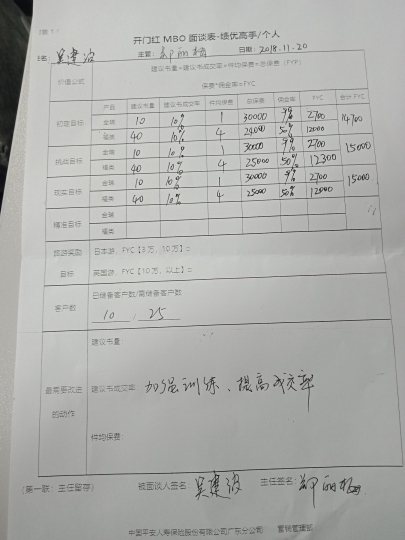 开门红 MBO 面谈表-绩优高手/个人
姓名: 吴建波 主管: 郑丽梅 日期: 2018.11.20
价值公式 建议书量*建议书成交率*件均保费=总保费(FYP)
保费*佣金率=FYC
产品 建议书量 建议书成交率 件均保费 总保费 佣金率 FYC 合计FYC
初定目标 金瑞 10 10% 1 30000 9% 2700 14700
福类 40 10% 4 24000 50% 12000
挑战目标 金瑞 10 10% 1 30000 9% 2700 15000
福类 40 10% 4 25000 50% 12300
现实目标 金瑞 10 10% 1 30000 9% 2700 15000
福类 40 10% 4 25000 50% 12000
精准目标 金瑞
福类
旅游奖励目标 日本游,FYC【3万,10万】=
英国游,FYC【10万,以上】=
客户数 已储备客户数/需储备客户数
10 / 25
最需要改进的动作 建议书量
建议书成交率 加强训练、提高成交率
件均保费
(第一联:主任留存) 被面谈人签名 吴建波 主任签名: 郑丽梅
中国平安人寿保险股份有限公司广东分公司 营销管理部